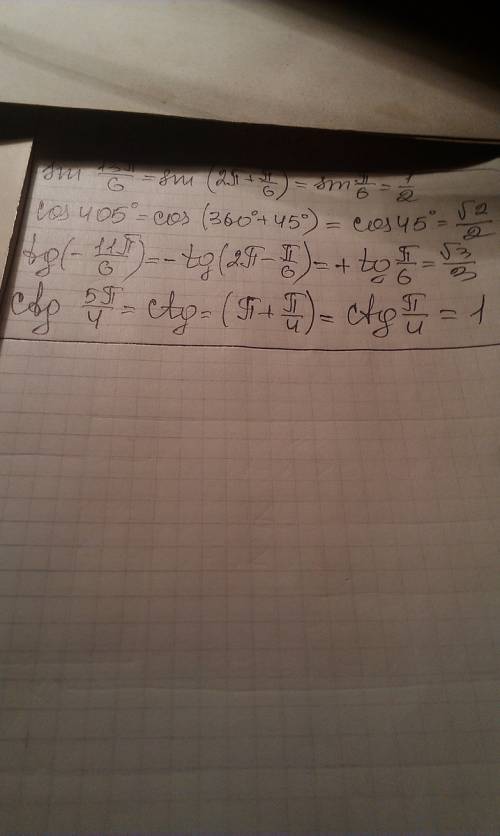 sin 13π/6 = sin (2π + π/6) = sin π/6 = 1/2
cos 405° = cos (360° + 45°) = cos 45° = √2/2
tg (- 11π/6) = - tg (2π - π/6) = + tg π/6 = √3/3
ctg 5π/4 = ctg = (π + π/4) = ctg π/4 = 1